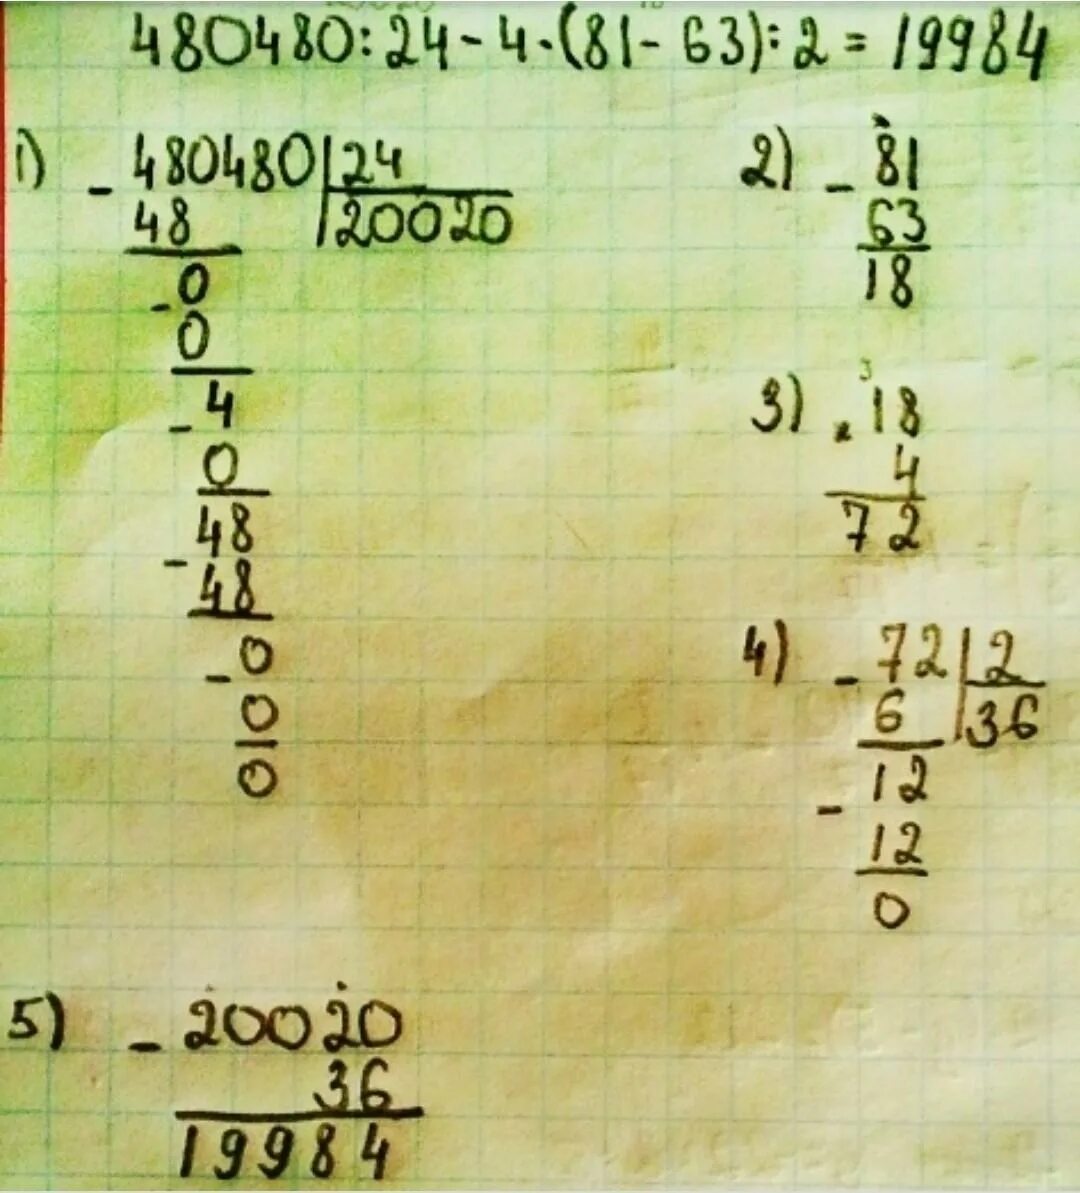 480480:24-4·(81-63):2=19984
1) - 480480 | 24
48 | 20020
- 0
0
- 4
0
- 48
48
- 0
0
0
2) - 81
63
18
3
3) · 18
4
72
4) - 72 | 2
6 | 36
- 12
12
0
5) - 20020
36
19984